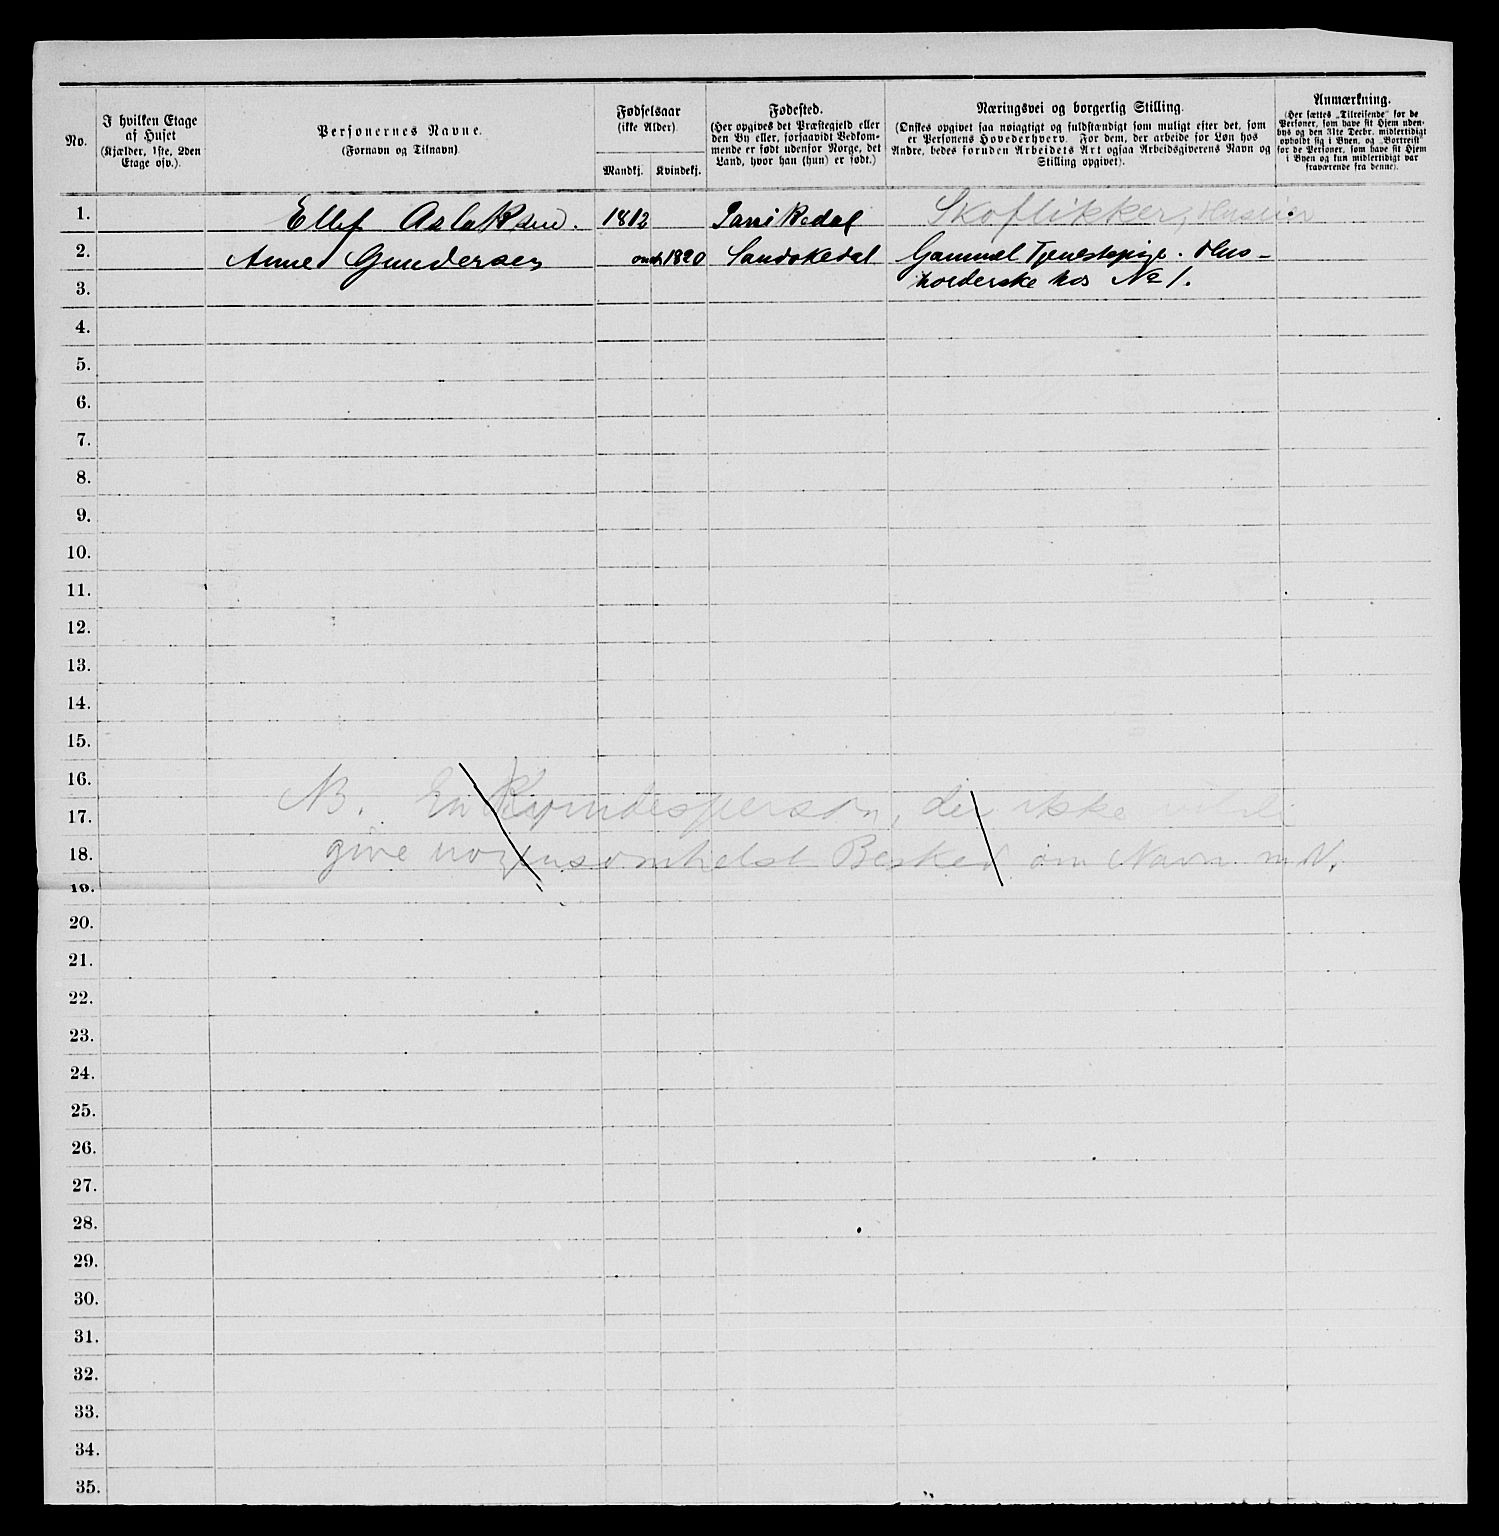 No.
I hvilken Etage
af Huset
(Kjælder, 1ste, 2den
Etage osv.).
Personernes Navne.
(Fornavn og Tilnavn).
Fødselsaar
(ikke Alder)
Mandkj. Kvindekj.
Fødested.
(Her opgives det Præstegjeld eller
den By eller, forsaavidt Vedkom-
mende er født udenfor Norge, det
Land, hvor han (hun) er født.)
Næringsvei og borgerlig Stilling.
(Ønskes opgivet saa nøiagtigt og fuldstændigt som muligt efter det, som
er Personens Hovederhverv. For dem, der arbeide for Løn hos
Andre, bedes foruden Arbeidets Art ogsaa Arbeidsgiverens Navn og
Stilling opgivet).
Anmærkning.
(Her sættes „Tilreisende" for de
Personer, som have sit Hjem uden-
bys og den 31te Decbr. midlertidigt
opholdt sig i Byen, og „Bortreist"
for de Personer, som have sit Hjem
i Byen og kun midlertidigt var
fraværende fra denne).
1. Ellef Aslaksen. 1812 Sannikedal Skoflikker, Huseier
2. Anne Gundersen omtr 1820 Sandøkedal Gammel Tjenestepige. Hus-
3. holderske hos No 1.
4.
5.
6.
7.
8.
9.
10.
11.
12.
13.
14.
15.
16.
NB. En Kvindesperson, der ikke
17.
give nogensomhelst Besked om Navn m. V.
18.
19.
20.
21.
22.
23.
24.
25.
26.
27.
28.
29.
30.
31.
32.
33.
34.
35.